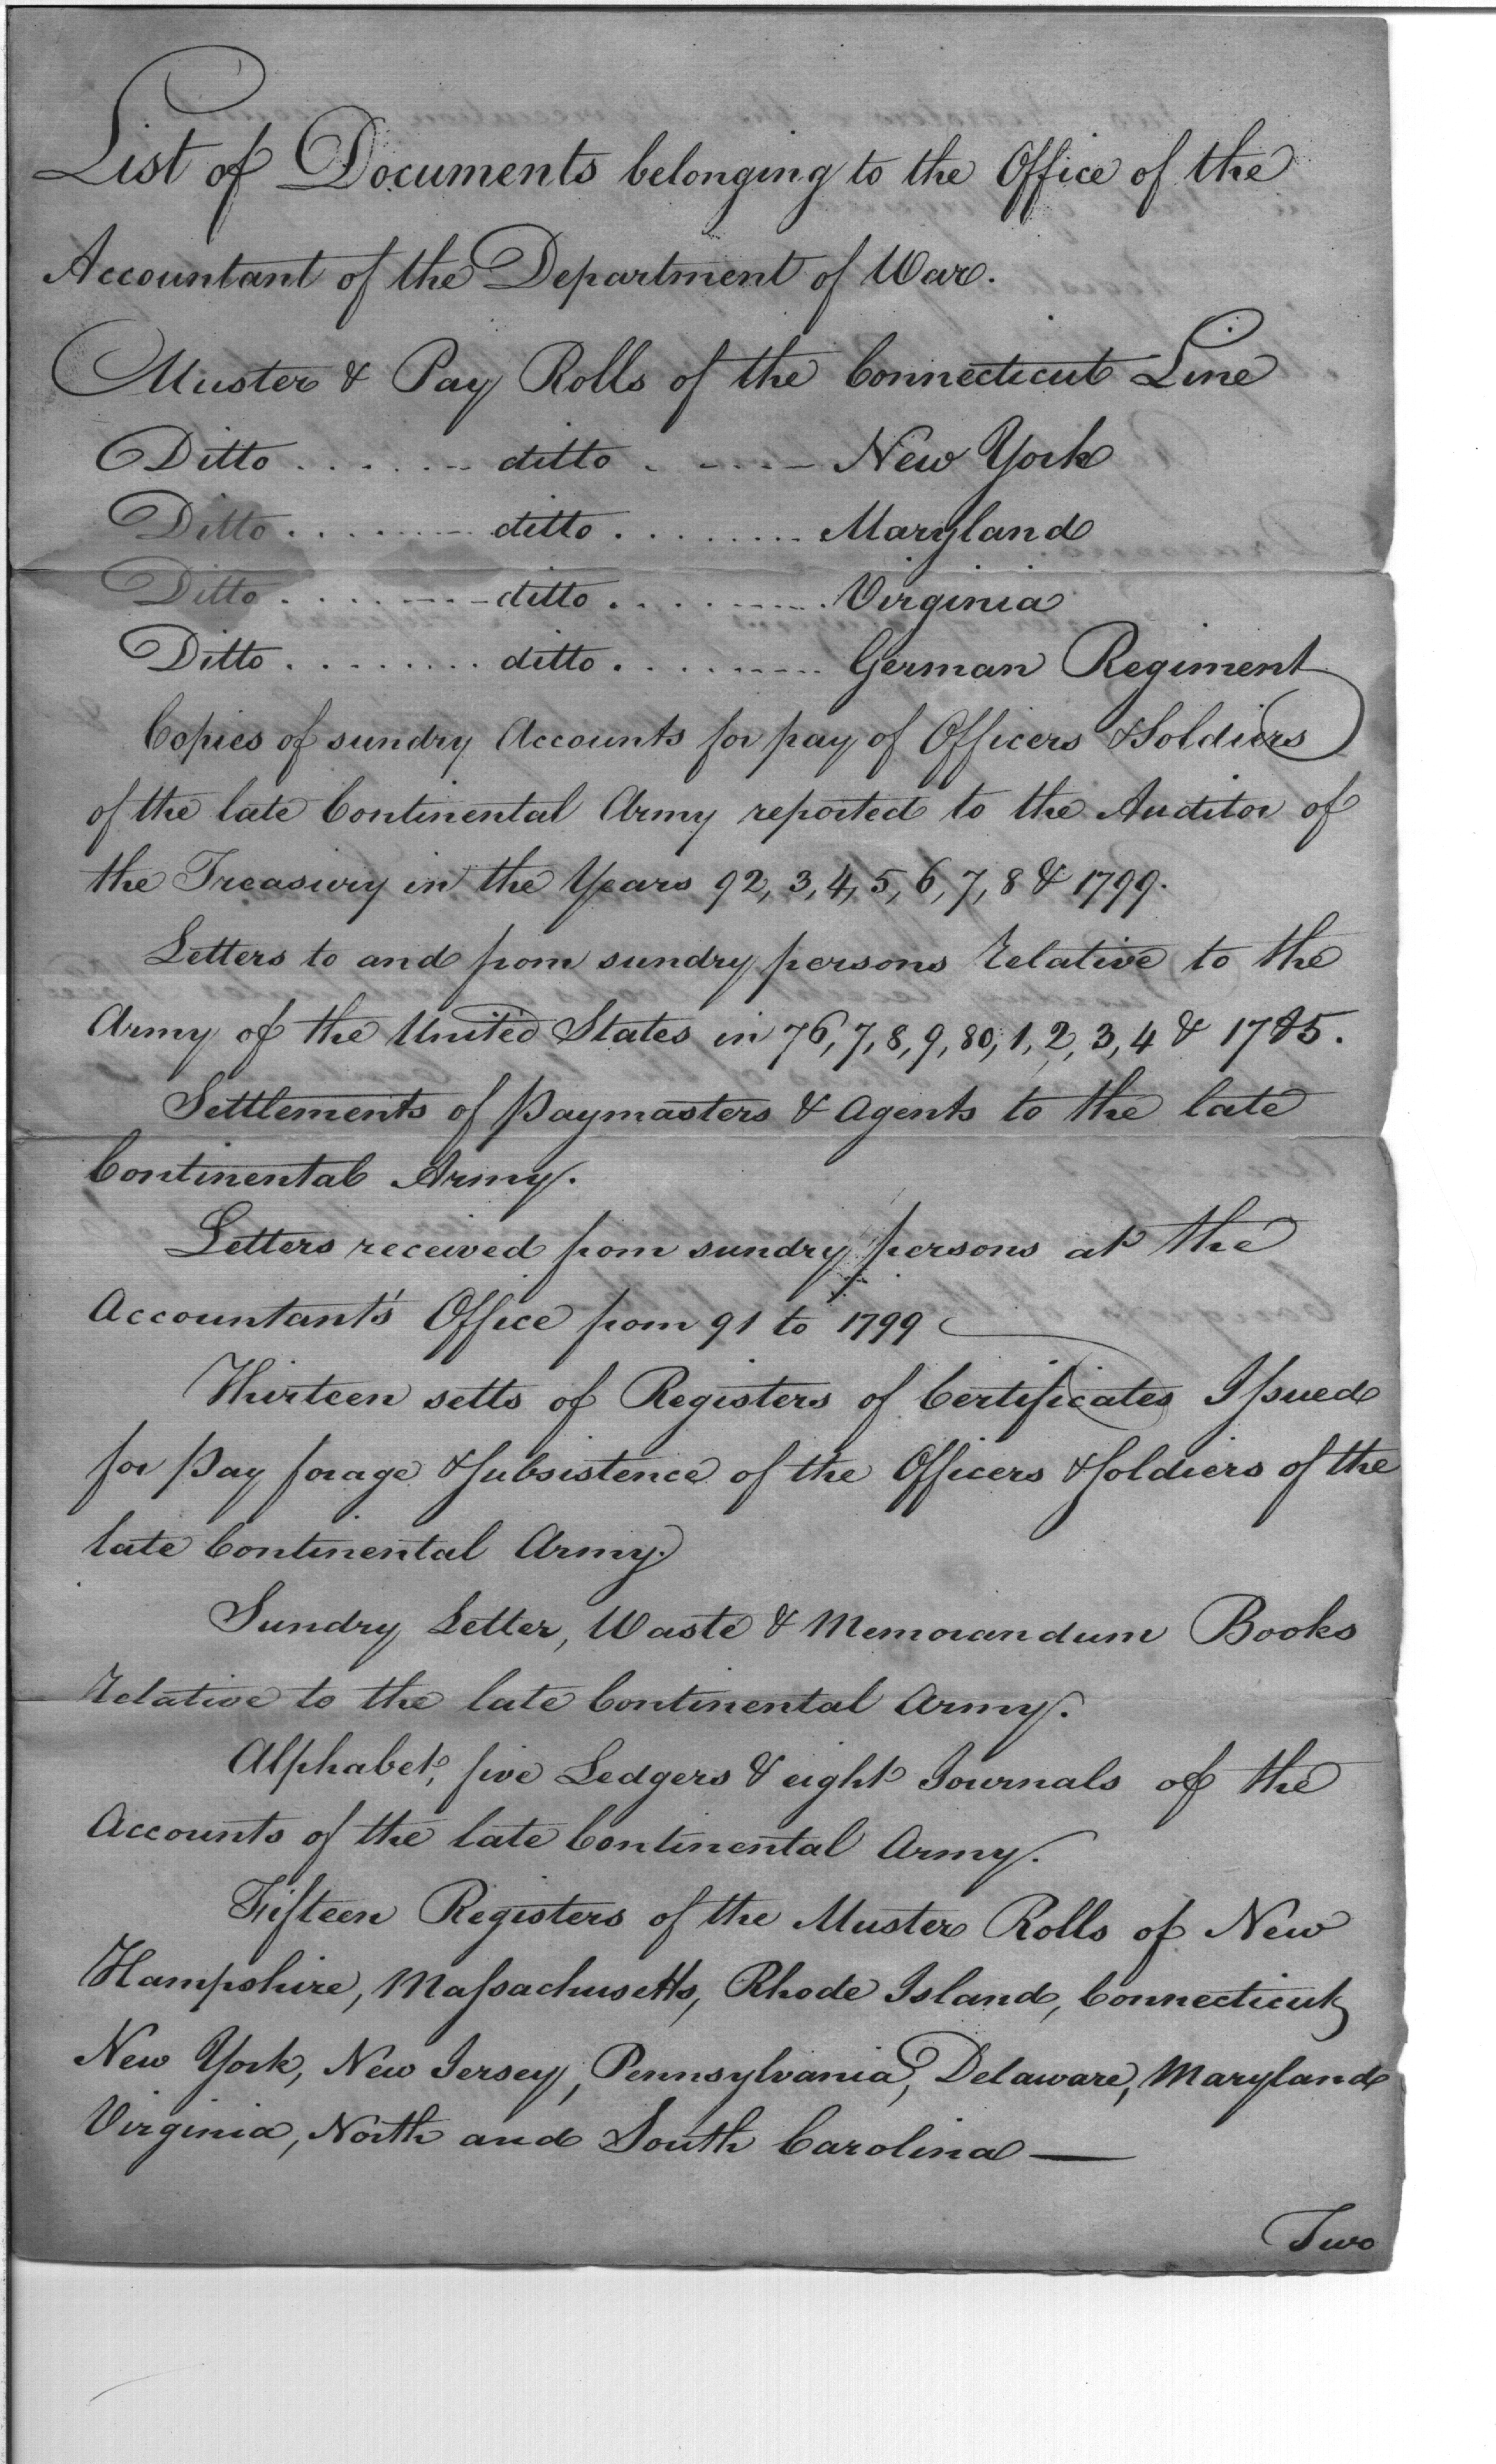 List of Documents belonging to the Office of the
Accountant of the Department of War.
Muster & Pay Rolls of the Connecticut Line
Ditto . . . . . . . ditto . . . . . . New York
Ditto . . . . . . . . ditto . . . . . . . . Maryland
Ditto . . . . . . . . ditto . . . . . . . . Virginia
Ditto . . . . . . . . ditto . . . . . . . . German Regiment
Copies of sundry Accounts for pay of Officers & Soldiers
of the late Continental Army reported to the Auditor of
the Treasury in the Years 92, 3, 4, 5, 6, 7, 8 & 1799.
Letters to and from sundry persons relative to the
Army of the United States in 76, 7, 8, 9, 80, 1, 2, 3, 4 & 1785.
Settlements of Paymasters & Agents to the late
Continental Army.
Letters received from sundry persons at the
Accountant's Office from 91 to 1799
Thirteen setts of Registers of Certificates Issued
for Pay forage & Subsistence of the Officers & Soldiers of the
late Continental Army.
Sundry Letter, Waste & Memorandum Books
relative to the late Continental Army.
Alphabet, five Ledgers & eight Journals of the
Accounts of the late Continental Army.
Fifteen Registers of the Muster Rolls of New
Hampshire, Massachusetts, Rhode Island, Connecticut,
New York, New Jersey, Pennsylvania, Delaware, Maryland
Virginia, North and South Carolina —
Two